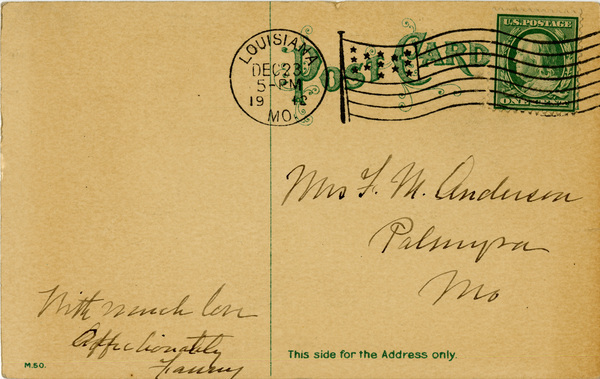 POST CARD
LOUISIANA
DEC 23
5-PM
19 12
MO.
U.S. POSTAGE
ONE CENT
Mrs F. M. Anderson
Palmyra
Mo
With much love
Affectionately
Fanny
This side for the Address only.
M.50.